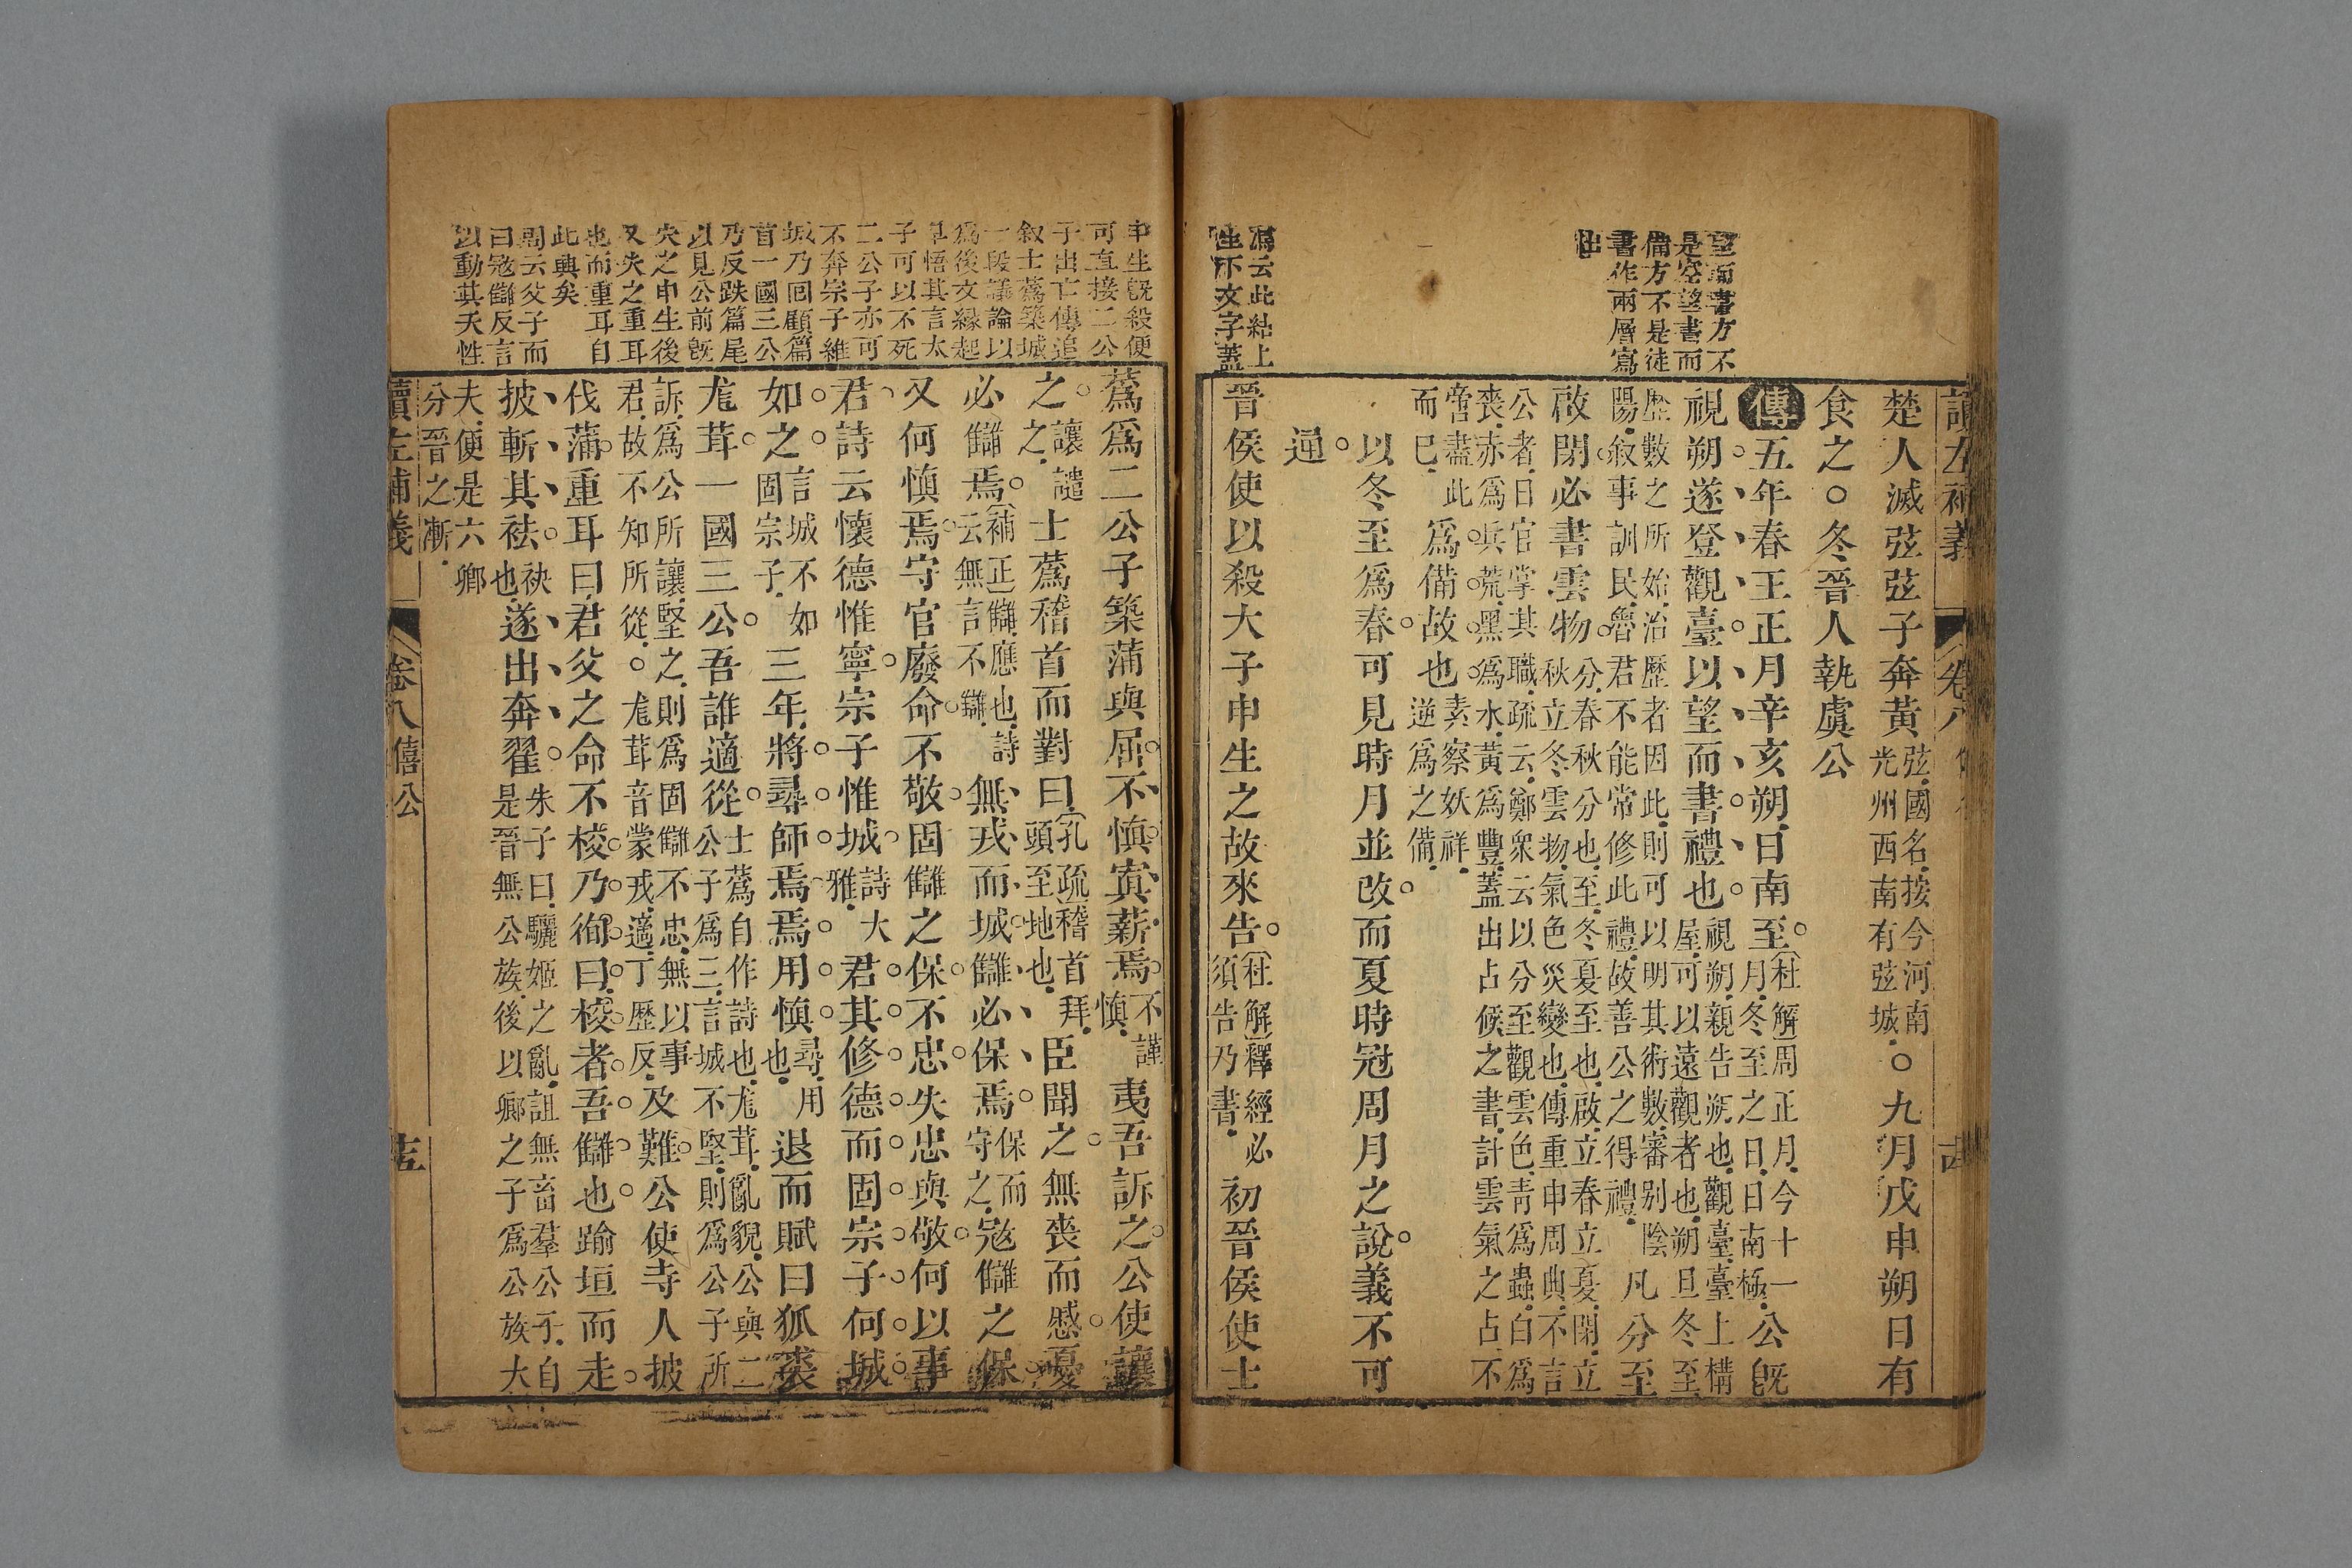 讀左補義 卷八
望而書方不
是空望書而
備方不是徒
書作兩層寫
出
馮云此結上
生下文字蓋
楚人滅弦弦子奔黃弦國名按今河南光州西南有弦城○九月戊申朔日有
食之○冬晉人執虞公
傳五年春王正月辛亥朔日南至杜解周正月今十一月冬至之日日南極公旣
視朔遂登觀臺以望而書禮也視朔親告朔也觀臺臺上構屋可以遠觀者也朔旦冬至
歷數之所始治歷者因此則可以明其術數審別陰陽敘事訓民魯君不能常修此禮故善公之得禮凡分至
啟閉必書雲物分春秋分也至冬夏至也啟立春立夏閉立秋立冬雲物氣色災變也傳重申周典不言
公者日官掌其職疏云鄭衆云以分至觀雲色青爲蟲白爲喪赤爲兵荒黑爲水黃爲豐蓋出占候之書計雲氣之占不
啻盡此而巳爲備故也素察妖祥逆爲之備
以冬至爲春可見時月並改而夏時冠周月之說義不可
通
晉侯使以殺大子申生之故來告杜解釋經必須告乃書初晉侯使士
申生旣殺便
可直接二公
子出亡傳追
敘士蔿築城
一段議論以
爲後文緣起
早悟其言太
子可以不死
二公子亦可
不奔宗子維
城乃囘顧篇
首一國三公
乃反跌篇尾
以見公前旣
失之申生後
又失之重耳
也而重耳自
此興矣
周云父子而
曰寇讎反言
以動其天性
蔿爲二公子築蒲與屈不愼寘薪焉不謹愼夷吾訴之公使讓
之讓譴之士蔿稽首而對曰孔疏稽首拜頭至地也臣聞之無喪而慼憂
必讎焉補正讎應也詩云無言不讎無戎而城讎必保焉保而守之寇讎之保
又何愼焉守官廢命不敬固讎之保不忠失忠與敬何以事
君詩云懷德惟寧宗子惟城詩大雅君其修德而固宗子何城
如之言城不如固宗子三年將尋師焉焉用愼尋用也退而賦曰狐裘
尨茸一國三公吾誰適從士蔿自作詩也尨茸亂貌公與二公子爲三言城不堅則爲公子所
訴爲公所讓堅之則爲固讎不忠無以事君故不知所從○尨茸音蒙戎適丁歷反及難公使寺人披
伐蒲重耳曰君父之命不校乃徇曰校者吾讎也踰垣而走
披斬其袪袂也遂出奔翟朱子曰驪姬之亂詛無畜羣公子自是晉無公族後以卿之子爲公族大
夫便是六卿分晉之漸
讀左補義 卷八僖公 十五